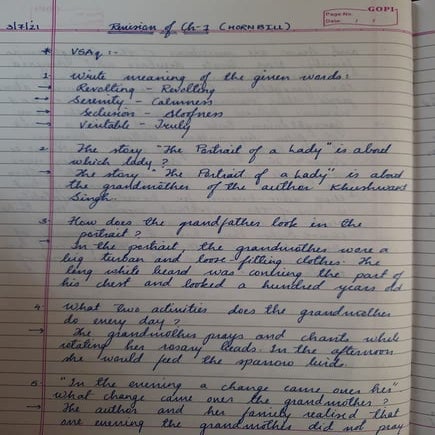 GOPI
Page No.
Date / /
3/7/21 Revision of Ch-1 (HORNBILL)
* VSAq :-
1. Write meaning of the given words:
→ Revolting - Revolting
→ Serenity - Calmness
→ Seclusion - Aloofness
→ Veritable - Truly
2. The story "The Portrait of a Lady" is about
which lady?
→ The story "The Portrait of a Lady" is about
the grandmother of the author Khushwant
Singh.
3. How does the grandfather look in the
portrait?
→ In the portrait, the grandmother wore a
big turban and loose fitting clothes. The
long white beard was covering the part of
his chest and looked a hundred years old
4. What two activities does the grandmother
do every day?
→ The grandmother prays and chants while
rotating her rosary beads. In the afternoon
she would feed the sparrow birds.
5. "In the evening a change came over her"
What change came over the grandmother?
→ The author and her family realised that
one evening the grandmother did not pray